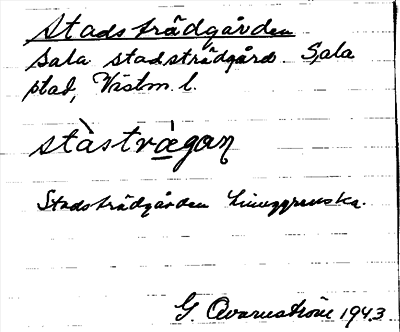 Stadsträdgården
Sala stadsträdgård. Sala
stad, Västm. l.
stàstrǝ̀gan
Stadsträdgården
G. Qvarnström 1943